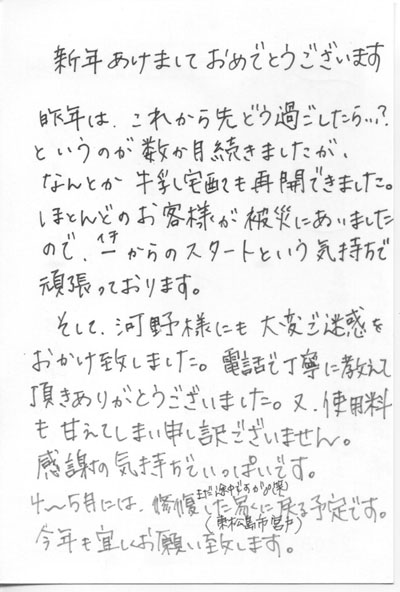 新年あけましておめでとうございます
昨年は、これから先どう過ごしたら…?
というのが数か月続きましたが、
なんとか牛乳宅配も再開できました。
ほとんどのお客様が被災にあいました
ので、一からのスタートという気持ちで
イチ
頑張っております。
そして、河野様にも大変ご迷惑を
おかけ致しました。電話で丁寧に教えて
頂きありがとうございました。又、使用料
も甘えてしまい申し訳ございません。
感謝の気持ちでいっぱいです。
まだ途中ですが
4〜5月には、修復した家に戻る予定です。
(東松島市宮戸)
今年も宜しくお願い致します。